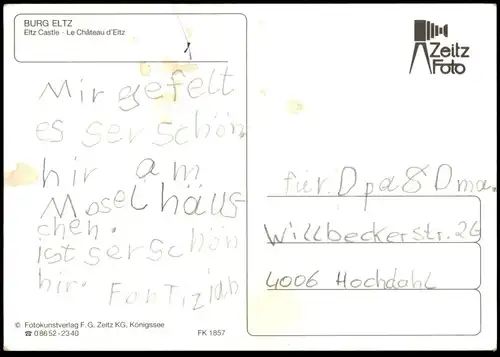 BURG ELTZ
Eltz Castle - Le Château d'Eltz
Zeitz
Foto
Mir gefelt
es ser schön
hir am
Moselhäus-
chen.
ist ser schön
hir.
für. Opa & Oma.
Willbeckerstr. 26
4006 Hochdahl
© Fotokunstverlag F. G. Zeitz KG, Königssee
☎ 08652-2340
FK 1857